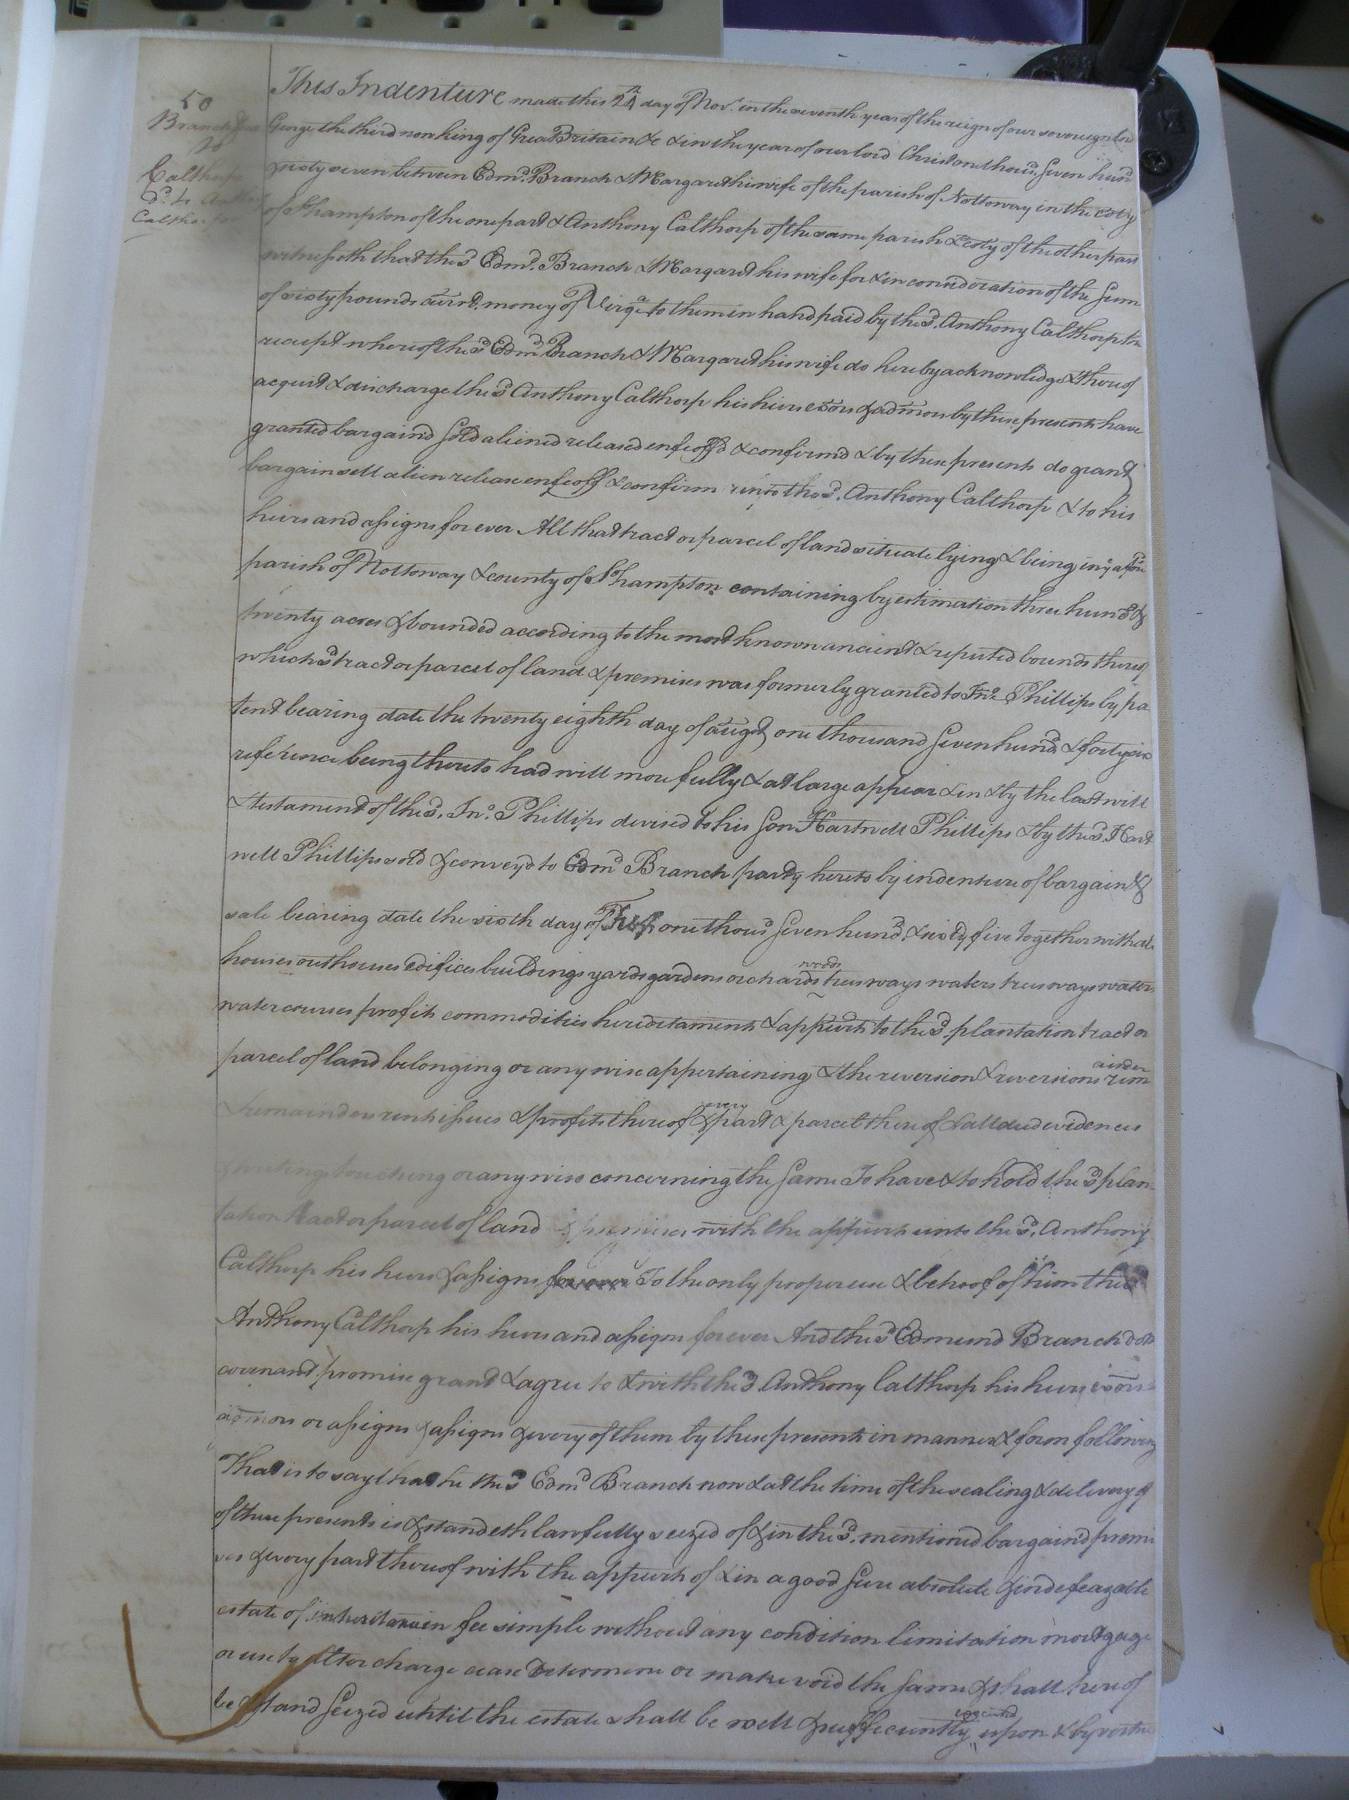 50
Branch
to
Calthorp
Dd. to Anth
Calthorp
This Indenture made this 24 day of Novr. in the seventh year of the reign of our sovereign lord
George the third now king of Great Britain &c & in the year of our lord Christ one thous. Seven hund
& sixty seven between Edmd. Branch & Margaret his wife of the parish of Nottoway in the coty
of So.hampton of the one part & Anthony Calthorp of the same parish & coty of the other part
witnesseth that the sd Edmd. Branch & Margaret his wife for & in consideration of the Sum
of sixty pounds currt. money of Virga to them in hand paid by the sd. Anthony Calthorp the
receipt whereof the sd Edmd Branch & Margaret his wife do hereby acknowledge & thereof
acquit & discharge the sd Anthony Calthorp his heirs exors & admors by these presents have
granted bargaind Sold aliened released enfeoff'd & confirmd & by these presents do grant
bargain sell alien release enfeoff & confirm unto the sd. Anthony Calthorp & to his
heirs and assigns for ever All that tract or parcel of land situate lying & being in ye afsd
parish of Nottoway & county of So.hampton containing by estimation three hund &
twenty acres & bounded according to the most known ancient & reputed bounds thereof
which sd tract or parcel of land & premises was formerly granted to Jno. Phillips by pa
tent bearing date the twenty eighth day of augst one thousand Seven hund & forty six
reference being thereto had will more fully & at large appear & in & by the last will
& testament of the sd. Jno. Phillips devised to his Son Hartwell Phillips & by the sd. Hart
well Phillips sold & convey'd to Edmd Branch party hereto by indenture of bargain &
sale bearing date the sixth day of one thousd Seven hund. & sixty five together with all
houses outhouses edifices buildings yards gardens orchards woods trees ways waters trees ways waters
watercourses profits commodities hereditaments & appurts to the sd. plantation tract or
parcel of land belonging or any wise appertaining & the reversion & reversions remainder
& remainders rents issues & profits thereof & every part & parcel thereof & all deed evidences
& writings touching or any wise concerning the Same To have & to hold the sd plan
tation tract or parcel of land & premises with the appurts unto the sd. Anthony
Calthorp his heirs & assigns for ever To the only proper use & behoof of him the sd
Anthony Calthorp his heirs and assigns forever And the sd Edmund Branch doth
covenant promise grant & agree to & with the sd. Anthony Calthorp his heirs exors
admors or assigns & assigns & every of them by these presents in manner & form following
That is to say that he the sd Edmd Branch now & at the time of the sealing & delivery of
of these presents is & standeth lawfully seized of & in the sd. mentioned bargain'd premi
ses & every part thereof with the appurts of & in a good Sure absolute & indefeazable
estate of inheritance in fee simple without any condition limitation mortgage
or use to alter charge cease determine or make void the Same & shall here of
be & stand Seized until the estate shall be well & sufficiently executed upon & by virtue